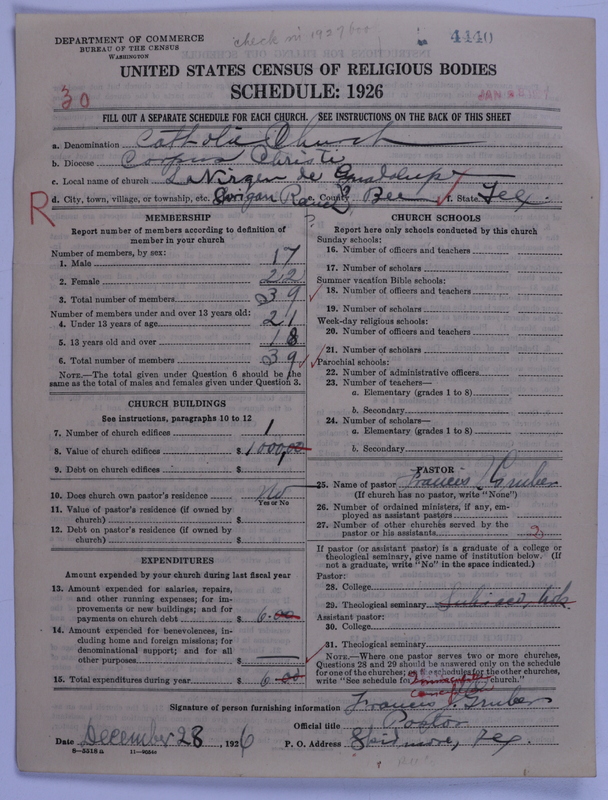 check in 1927
4440
DEPARTMENT OF COMMERCE
BUREAU OF THE CENSUS
WASHINGTON
UNITED STATES CENSUS OF RELIGIOUS BODIES
SCHEDULE: 1926
30
FILL OUT A SEPARATE SCHEDULE FOR EACH CHURCH. SEE INSTRUCTIONS ON THE BACK OF THIS SHEET
a. Denomination Catholic Church
b. Diocese Corpus Christi
c. Local name of church La Virgen de Guadalupe
d. City, town, village, or township, etc. Ranch e. County Bee f. State Tex.
R
MEMBERSHIP
Report number of members according to definition of member in your church
Number of members, by sex:
1. Male 17
2. Female 22
3. Total number of members 39
Number of members under and over 13 years old:
4. Under 13 years of age 21
5. 13 years old and over 18
6. Total number of members 39
NOTE.—The total given under Question 6 should be the same as the total of males and females given under Question 3.
CHURCH BUILDINGS
See instructions, paragraphs 10 to 12
7. Number of church edifices 1
8. Value of church edifices $ 1000,00
9. Debt on church edifices $
10. Does church own pastor's residence No
Yes or No
11. Value of pastor's residence (if owned by church) $
12. Debt on pastor's residence (if owned by church) $
EXPENDITURES
Amount expended by your church during last fiscal year
13. Amount expended for salaries, repairs, and other running expenses; for improvements or new buildings; and for payments on church debt $ 6.00
14. Amount expended for benevolences, including home and foreign missions; for denominational support; and for all other purposes $
15. Total expenditures during year $ 6.00
CHURCH SCHOOLS
Report here only schools conducted by this church
Sunday schools:
16. Number of officers and teachers
17. Number of scholars
Summer vacation Bible schools:
18. Number of officers and teachers
19. Number of scholars
Week-day religious schools:
20. Number of officers and teachers
21. Number of scholars
Parochial schools:
22. Number of administrative officers
23. Number of teachers—
a. Elementary (grades 1 to 8)
b. Secondary
24. Number of scholars—
a. Elementary (grades 1 to 8)
b. Secondary
PASTOR
25. Name of pastor Francis J. Gruber
(If church has no pastor, write "None")
26. Number of ordained ministers, if any, employed as assistant pastors
27. Number of other churches served by the pastor or his assistants 2
If pastor (or assistant pastor) is a graduate of a college or theological seminary, give name of institution below. (If not a graduate, write "No" in the space indicated.)
Pastor:
28. College
29. Theological seminary Subiaco, Ark.
Assistant pastor:
30. College
31. Theological seminary
NOTE.—Where one pastor serves two or more churches, Questions 28 and 29 should be answered only on the schedule for one of the churches; on the schedules for the other churches, write "See schedule for Immaculate Conception church."
Signature of person furnishing information Francis J. Gruber
Official title Pastor
Date December 28, 1926 P. O. Address Skidmore, Tex.
8—5518a 11—9554a